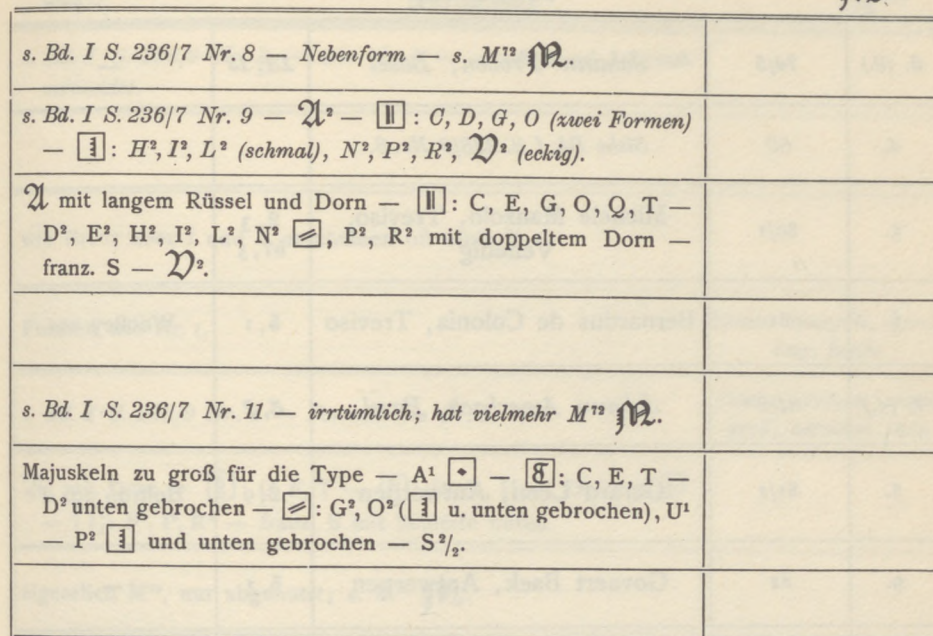 s. Bd. I S. 236/7 Nr. 8 — Nebenform — s. M⁷² 𝔐.
s. Bd. I S. 236/7 Nr. 9 — 𝔄² — ‖ : C, D, G, O (zwei Formen)
— : H², I², L² (schmal), N², P², R², 𝔙² (eckig).
𝔄 mit langem Rüssel und Dorn — ‖ : C, E, G, O, Q, T —
D², E², H², I², L², N² , P², R² mit doppeltem Dorn —
franz. S — 𝔙².
s. Bd. I S. 236/7 Nr. 11 — irrtümlich; hat vielmehr M⁷² 𝔐.
Majuskeln zu groß für die Type — A¹ — : C, E, T —
D² unten gebrochen — : G², O² ( u. unten gebrochen), U¹
— P² und unten gebrochen — S²/₂.